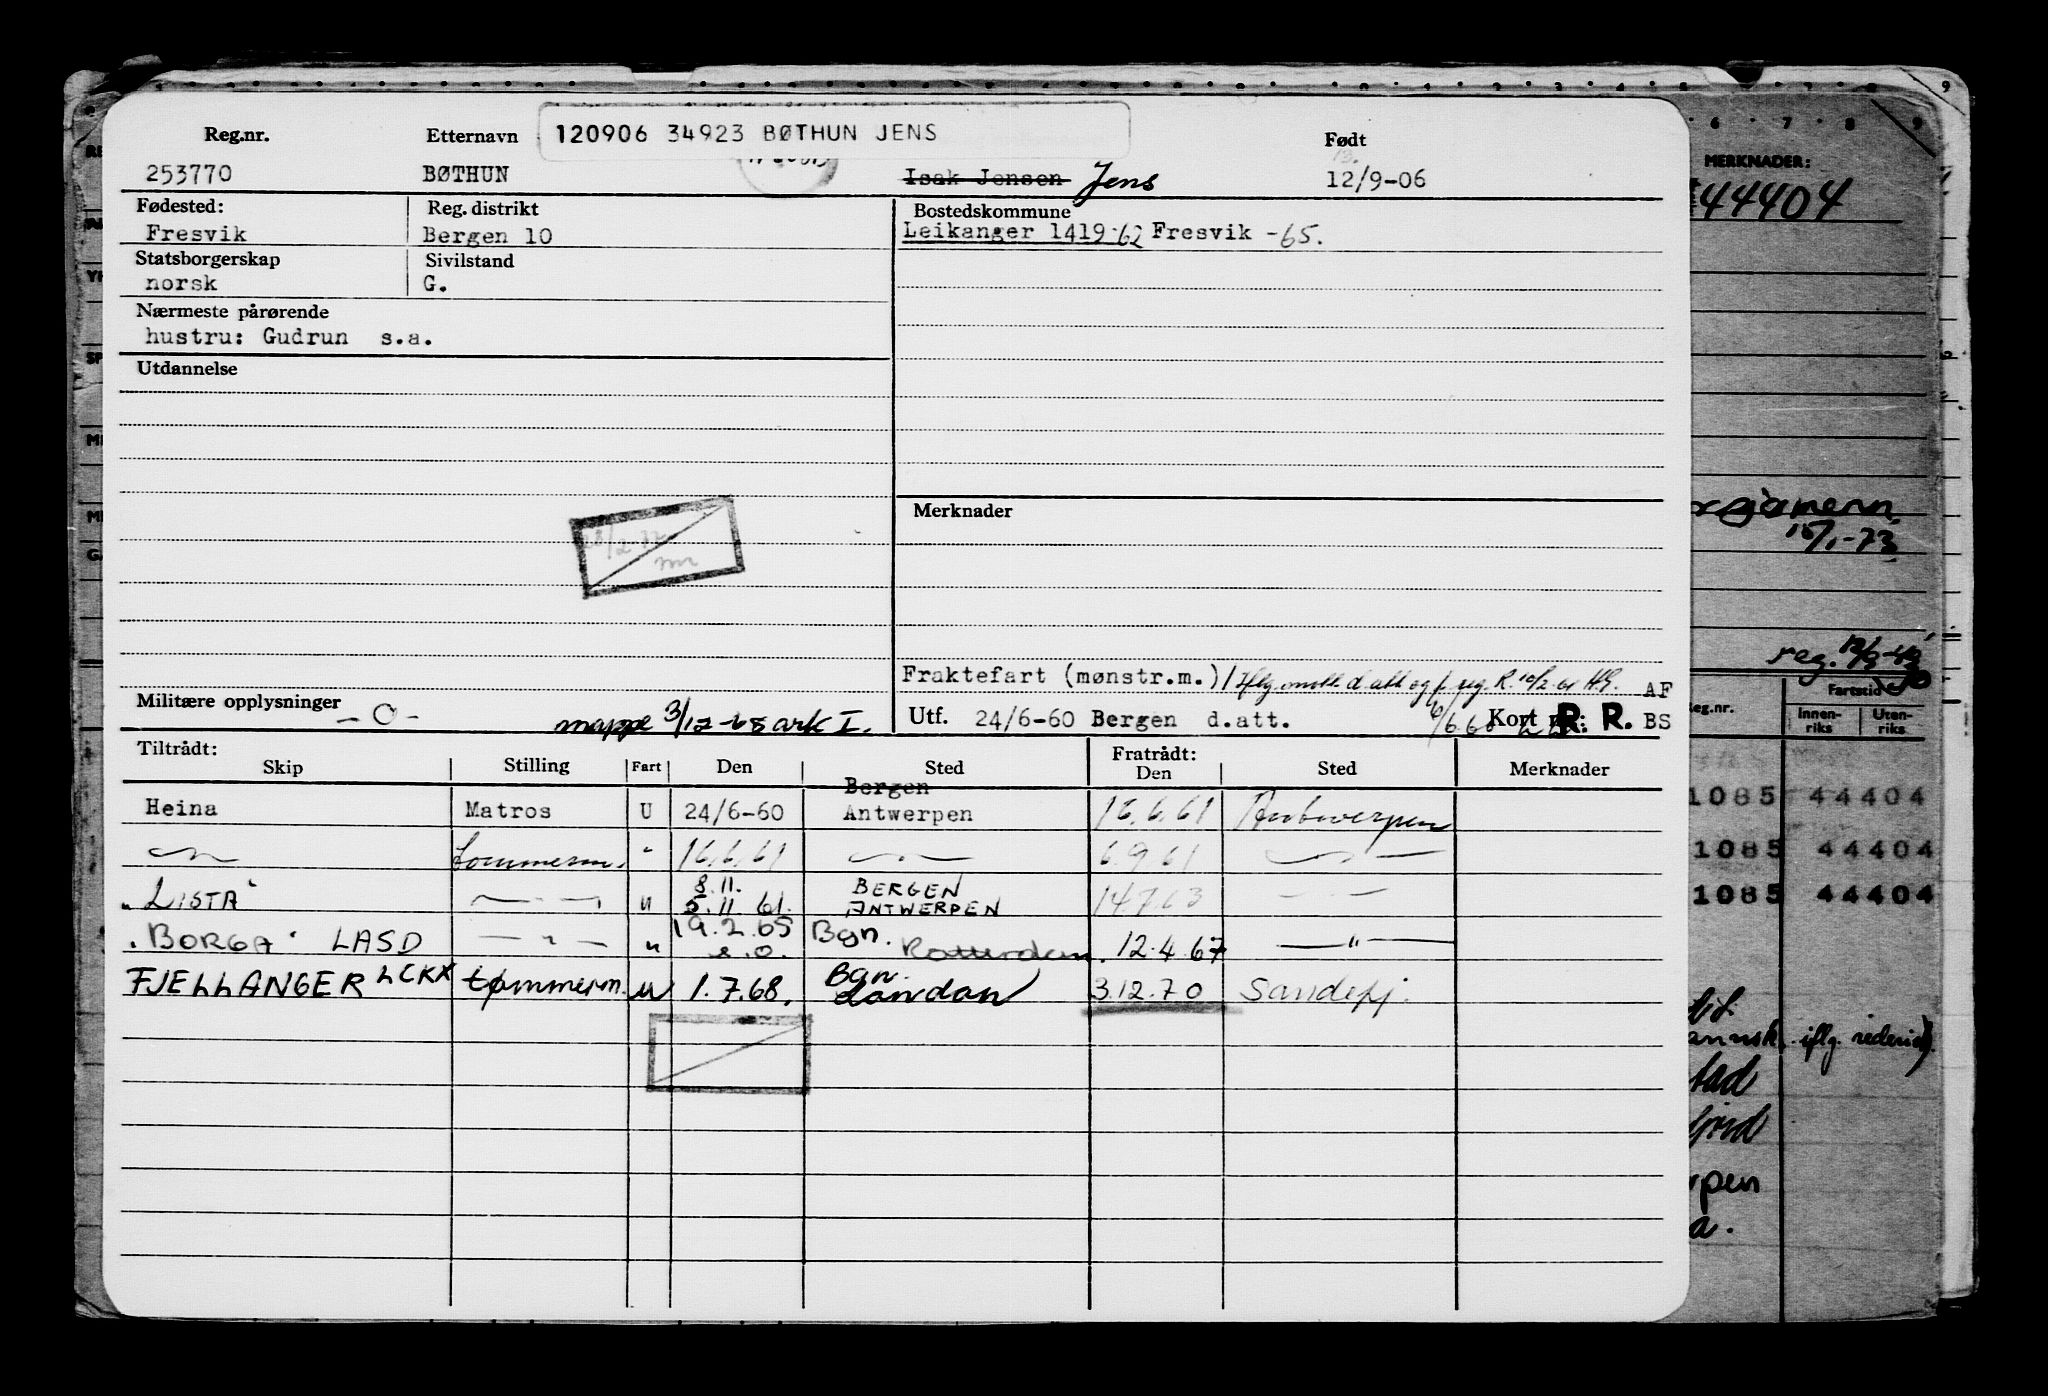 120906 34923 BØTHUN JENS
Reg.nr. Etternavn Født
253770 BØTHUN Isak Jensen Jens 12/9-06
Fødested: Reg. distrikt Bostedskommune
Fresvik Bergen 10 Leikanger 1419-62 Fresvik -65.
Statsborgerskap Sivilstand
norsk G.
Nærmeste pårørende
hustru: Gudrun s.a.
Utdannelse
Merknader
Fraktefart (mønstr.m.) AF
Militære opplysninger
- O - mappe 3/12-68 ark I.
Utf. 24/6-60 Bergen d.att. Kort nr: R. R. BS
Tiltrådt: Fratrådt:
Skip Stilling Fart Den Sted Den Sted Merknader
Bergen
Heina Matros U 24/6-60 Antwerpen 16.6.61 Antwerpen
tømmerm. " 16.6.61 6.9.61
8.11. BERGEN
"LISTA" u 5.11 61. ANTWERPEN 14.7.63
"BORGA" LASD — " — " 19.2.65 Bgn. Rotterdam. 12.4.67 — " —
FJELLANGER LCKX tømmerm. u 1.7.68. Bgn. London 3.12.70 Sandefj.
MERKNADER:
44404
15/1-73
reg.
Fartstid
Reg.nr. Innenriks Utenriks
1085 44404
1085 44404
1085 44404
iflg. rederiet)